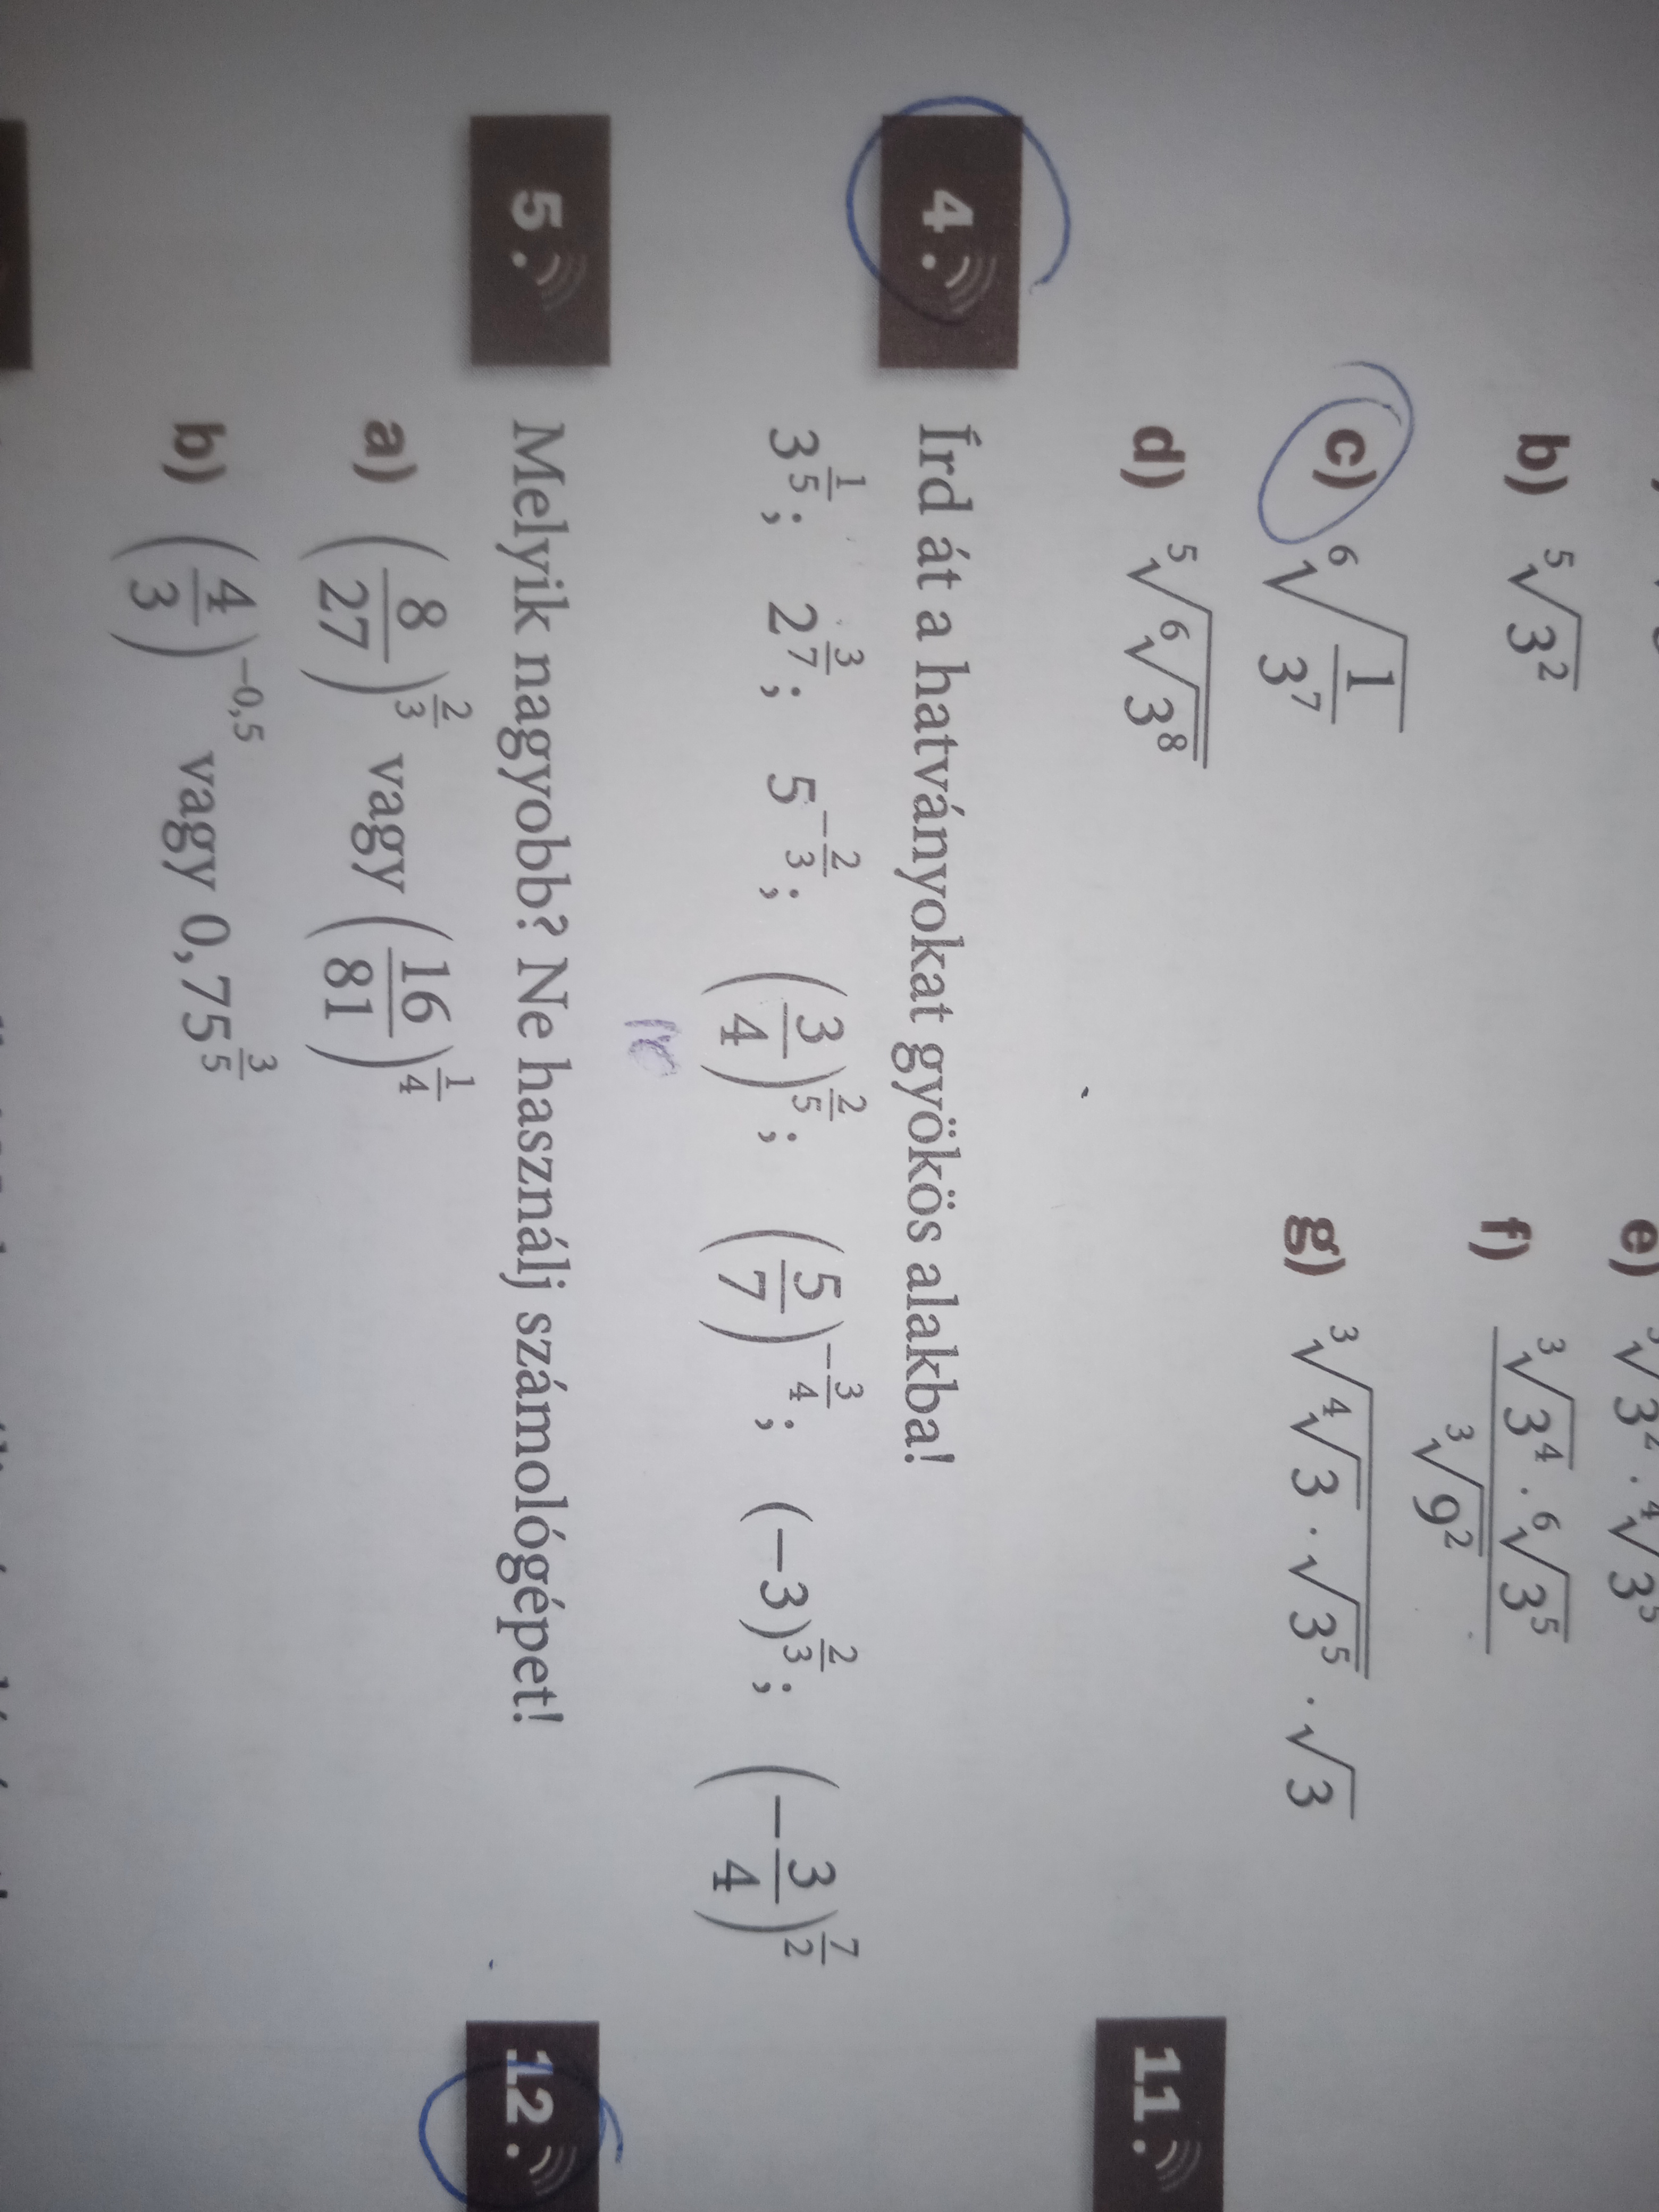 b) \sqrt[5]{3^2}
c) \sqrt[6]{\frac{1}{3^7}}
d) \sqrt[5]{\sqrt[6]{3^8}}
e)
f) \frac{\sqrt[3]{3^4} \cdot \sqrt[6]{3^5}}{\sqrt[3]{9^2}}
g) \sqrt[3]{\sqrt[4]{3} \cdot \sqrt{3^5}} \cdot \sqrt{3}
4. Írd át a hatványokat gyökös alakba!
3^{\frac{1}{5}}; 2^{\frac{3}{7}}; 5^{-\frac{2}{3}}; \left(\frac{3}{4}\right)^{\frac{2}{5}}; \left(\frac{5}{7}\right)^{-\frac{3}{4}}; (-3)^{\frac{2}{3}}; \left(-\frac{3}{4}\right)^{\frac{7}{2}}
5. Melyik nagyobb? Ne használj számológépet!
a) \left(\frac{8}{27}\right)^{\frac{2}{3}} vagy \left(\frac{16}{81}\right)^{\frac{1}{4}}
b) \left(\frac{4}{3}\right)^{-0,5} vagy 0,75^{\frac{3}{5}}
11.
12.